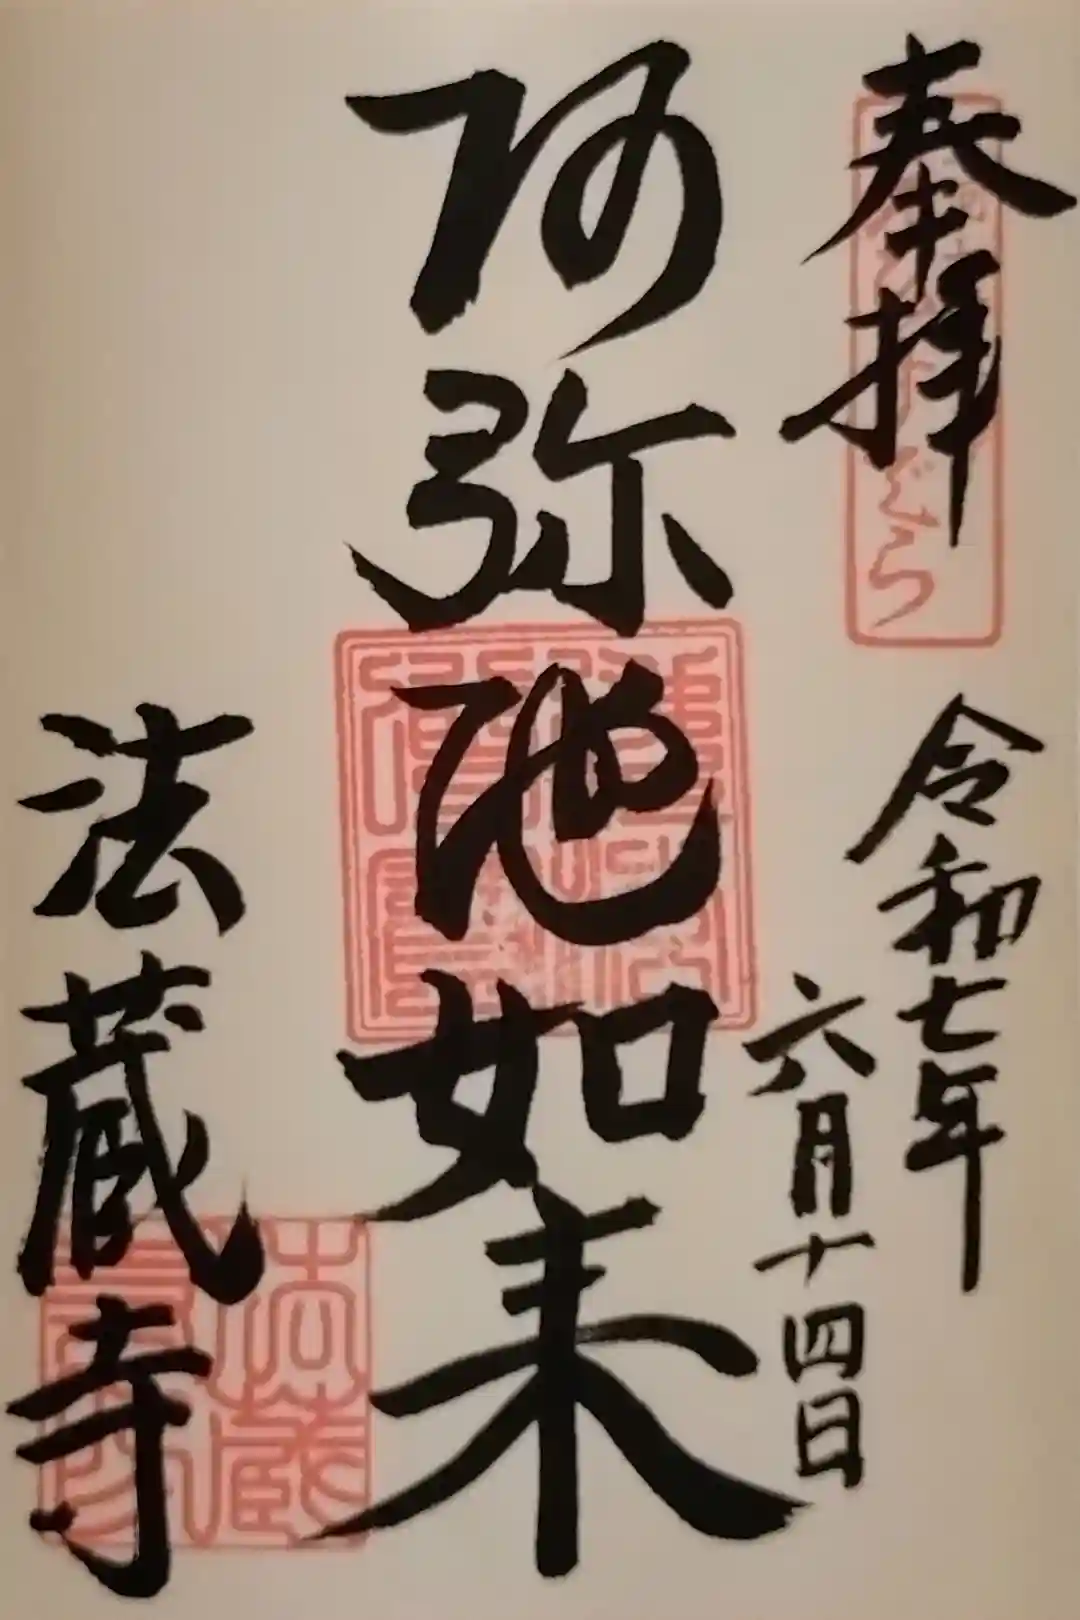 奉拝
令和七年
六月十四日
阿弥陀如来
法蔵寺